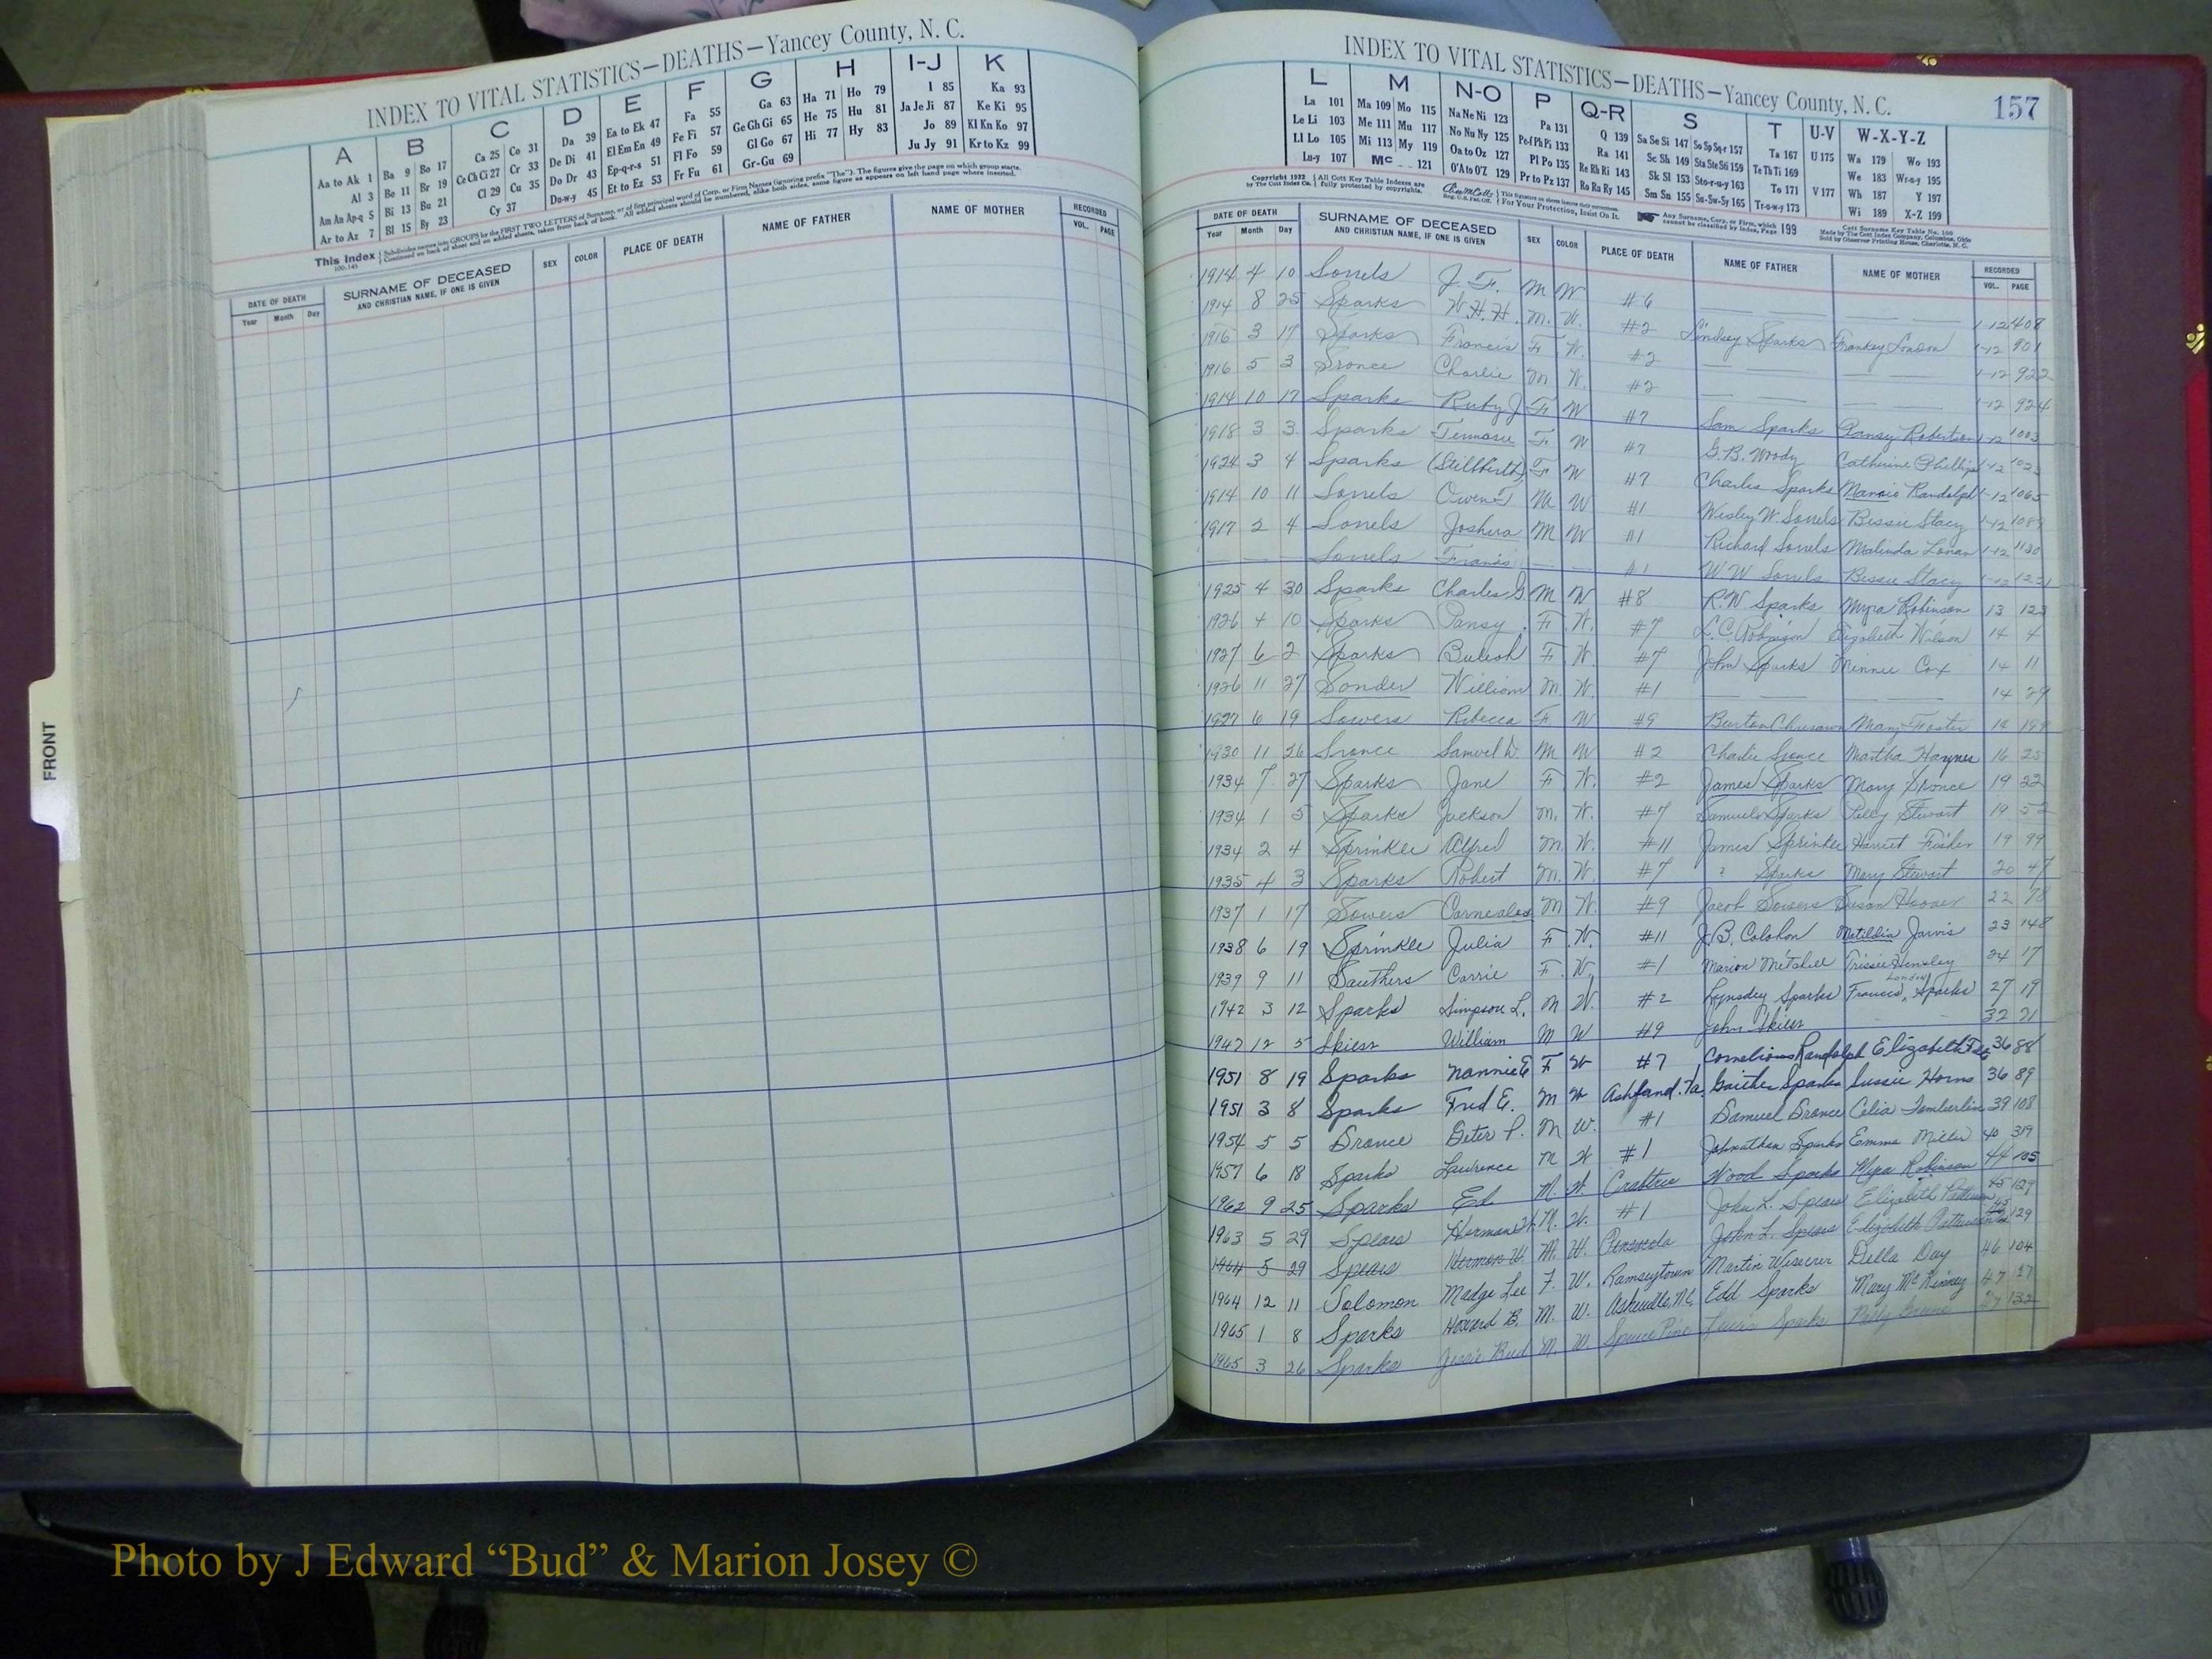 INDEX TO VITAL STATISTICS—DEATHS—Yancey County, N. C.
A B C D E F G H I-J K
Aa to Ak 1 Ba 9 Bo 17 Ca 25 Co 31 Da 39 Ea to Ek 47 Fa 55 Ga 63 Ha 71 Ho 79 I 85 Ka 93
Al 3 Be 11 Br 19 Ce Ch Ci 27 Cr 33 De Di 41 El Em En 49 Fe Fi 57 Ge Gh Gi 65 He 75 Hu 81 Ja Je Ji 87 Ke Ki 95
Am An Ap-q 5 Bi 13 Bu 21 Cl 29 Cu 35 Do Dr 43 Ep-q-r-s 51 Fl Fo 59 Gl Go 67 Hi 77 Hy 83 Jo 89 Kl Kn Ko 97
Ar to Az 7 Bl 15 By 23 Cy 37 Du-w-y 45 Et to Ez 53 Fr Fu 61 Gr-Gu 69 Ju Jy 91 Kr to Kz 99
This Index 100-145 Subdivides names into GROUPS by the FIRST TWO LETTERS of Surname, or of first principal word of Corp. or Firm Names (ignoring prefix "The"). The figures give the page on which group starts.
Continued on back of sheet and on added sheets, taken from back of book. All added sheets should be numbered, alike both sides, same figure as appears on left hand page where inserted.
DATE OF DEATH SURNAME OF DECEASED SEX COLOR PLACE OF DEATH NAME OF FATHER NAME OF MOTHER RECORDED
Year Month Day AND CHRISTIAN NAME, IF ONE IS GIVEN VOL. PAGE
FRONT
INDEX TO VITAL STATISTICS—DEATHS—Yancey County, N. C. 157
L M N-O P Q-R S T U-V W-X-Y-Z
La 101 Ma 109 Mo 115 Na Ne Ni 123 Pa 131 Q 139 Sa Se Si 147 So Sp Sq-r 157 Ta 167 U 175 Wa 179 Wo 193
Le Li 103 Me 111 Mu 117 No Nu Ny 125 Pe-f Ph Pi 133 Ra 141 Sc Sh 149 Sta Ste Sti 159 Te Th Ti 169 We 183 Wr-u-y 195
Ll Lo 105 Mi 113 My 119 Oa to Oz 127 Pl Po 135 Re Rh Ri 143 Sk Sl 153 Sto-r-u-y 163 To 171 V 177 Wh 187 Y 197
Lu-y 107 Mc 121 O'A to O'Z 129 Pr to Pz 137 Ro Ru Ry 145 Sm Sn 155 Su-Sw-Sy 165 Tr-u-w-y 173 Wi 189 X-Z 199
Copyright 1922 by The Cott Index Co. All Cott Key Table Indexes are fully protected by copyrights. For Your Protection, Insist On It. Any Surname, Corp. or Firm, which cannot be classified by index, Page 199 Cott Surname Key Table No. 100 Made by The Cott Index Company, Columbus, Ohio Sold by Observer Printing House, Charlotte, N. C.
DATE OF DEATH SURNAME OF DECEASED SEX COLOR PLACE OF DEATH NAME OF FATHER NAME OF MOTHER RECORDED
Year Month Day AND CHRISTIAN NAME, IF ONE IS GIVEN VOL. PAGE
1914 4 10 Sorrels J. F. M W #6 1-12 408
1914 8 25 Sparks W.H.H. M. W. #2 Lindsey Sparks Frankey London 1-12 901
1916 3 17 Sparks Francis F W. #2 1-12 922
1916 5 3 Sronce Charlie M W. #2 1-12 924
1914 10 17 Sparks Ruby J F W #7 Sam Sparks Pansy Robertson 1-12 1003
1918 3 3 Sparks F W #7 G.B. Woody Catherine Phillips 1-12
1924 3 4 Sparks (Stillbirth) F W #7 Charles Sparks Randolph 1-12 1065
1914 10 11 Sorrels Owen M W #1 Wesley W Sorrels Bessie Stacy 1-12
1917 2 4 Sorrels Joshura M W #1 Richard Sorrels Malinda 1-12 1130
Sorrels Francis #1 W W Sorrels Bessie Stacy 1-12
1925 4 30 Sparks Charles G M W #8 R.W Sparks Myra Robinson 13 123
1926 4 10 Sparks Pansy F. W. #7 L.C. Robinson Elizabeth Wilson 14 4
1927 6 2 Sparks Buleah F W. #7 John Sparks Minnie Cox 14 11
1926 11 27 Sonder William M W. #1 14 29
1927 6 19 Sowers Rebecca F W #9 Burton Mary Foster 14
1930 11 26 Sronce Samuel D. M W #2 Charlie Sronce Martha Haynes 16 25
1934 7 27 Sparks Jane F W. #2 James Sparks Mary Sronce 19 22
1934 1 5 Sparks Jackson M. W. #7 Samuel Sparks Polly Stewart 19 52
1934 2 4 Sprinkle Alfred M W. #11 James Sprinkle Harriet Fisher 19 99
1935 4 3 Sparks Robert M. W. #7 ? Sparks Mary Stewart 20 47
1937 1 17 Sowers M W. #9 Jacob Sowers Susan Hoover 22 78
1938 6 19 Sprinkle Julia F W. #11 J.B. Colohon Matildia Jarvis 23 148
1939 9 11 Southers Carrie F. W. #1 Marion Metchell Hensley 24 17
1942 3 12 Sparks Simpson L. M W. #2 Lynsdey Sparks Francis London Sparks 27 19
1947 12 5 Skiesr William M W #9 John Skiesr 32 21
1951 8 19 Sparks Nannie E F W #7 Cornelious Randolph Elizabeth 36 88
1951 3 8 Sparks Fred E. M W Ashford. Va. Gaither Sparks Sussie Horns 36 89
1954 5 5 Sronce Deter P. M W. #1 Samuel Sronce Celia Tomberlin 39 108
1957 6 18 Sparks Lawrence M W #1 Johnathan Sparks Emma Miller 40 319
1962 9 25 Sparks Ed M. W. Crabtree Wood Sparks Myra Robinson 44 105
1963 5 29 Spears Herman W. M. W. #1 John L. Spears Elizabeth Patterson 45 129
1964 5 29 Spears Herman W M. W. Pensacola John L. Spears Elizabeth Patterson 45 129
1964 12 11 Solomon Madge Lee F. W. Ramseytown Martin Wiserer Della Day 46 104
1965 1 8 Sparks Howard B. M. W. Asheville, N.C. Edd Sparks Mary McKinney 47 27
1965 3 26 Sparks Jessie Bud M. W. Spruce Pine Sparks Polly Greene 47 132
Photo by J Edward “Bud” & Marion Josey ©